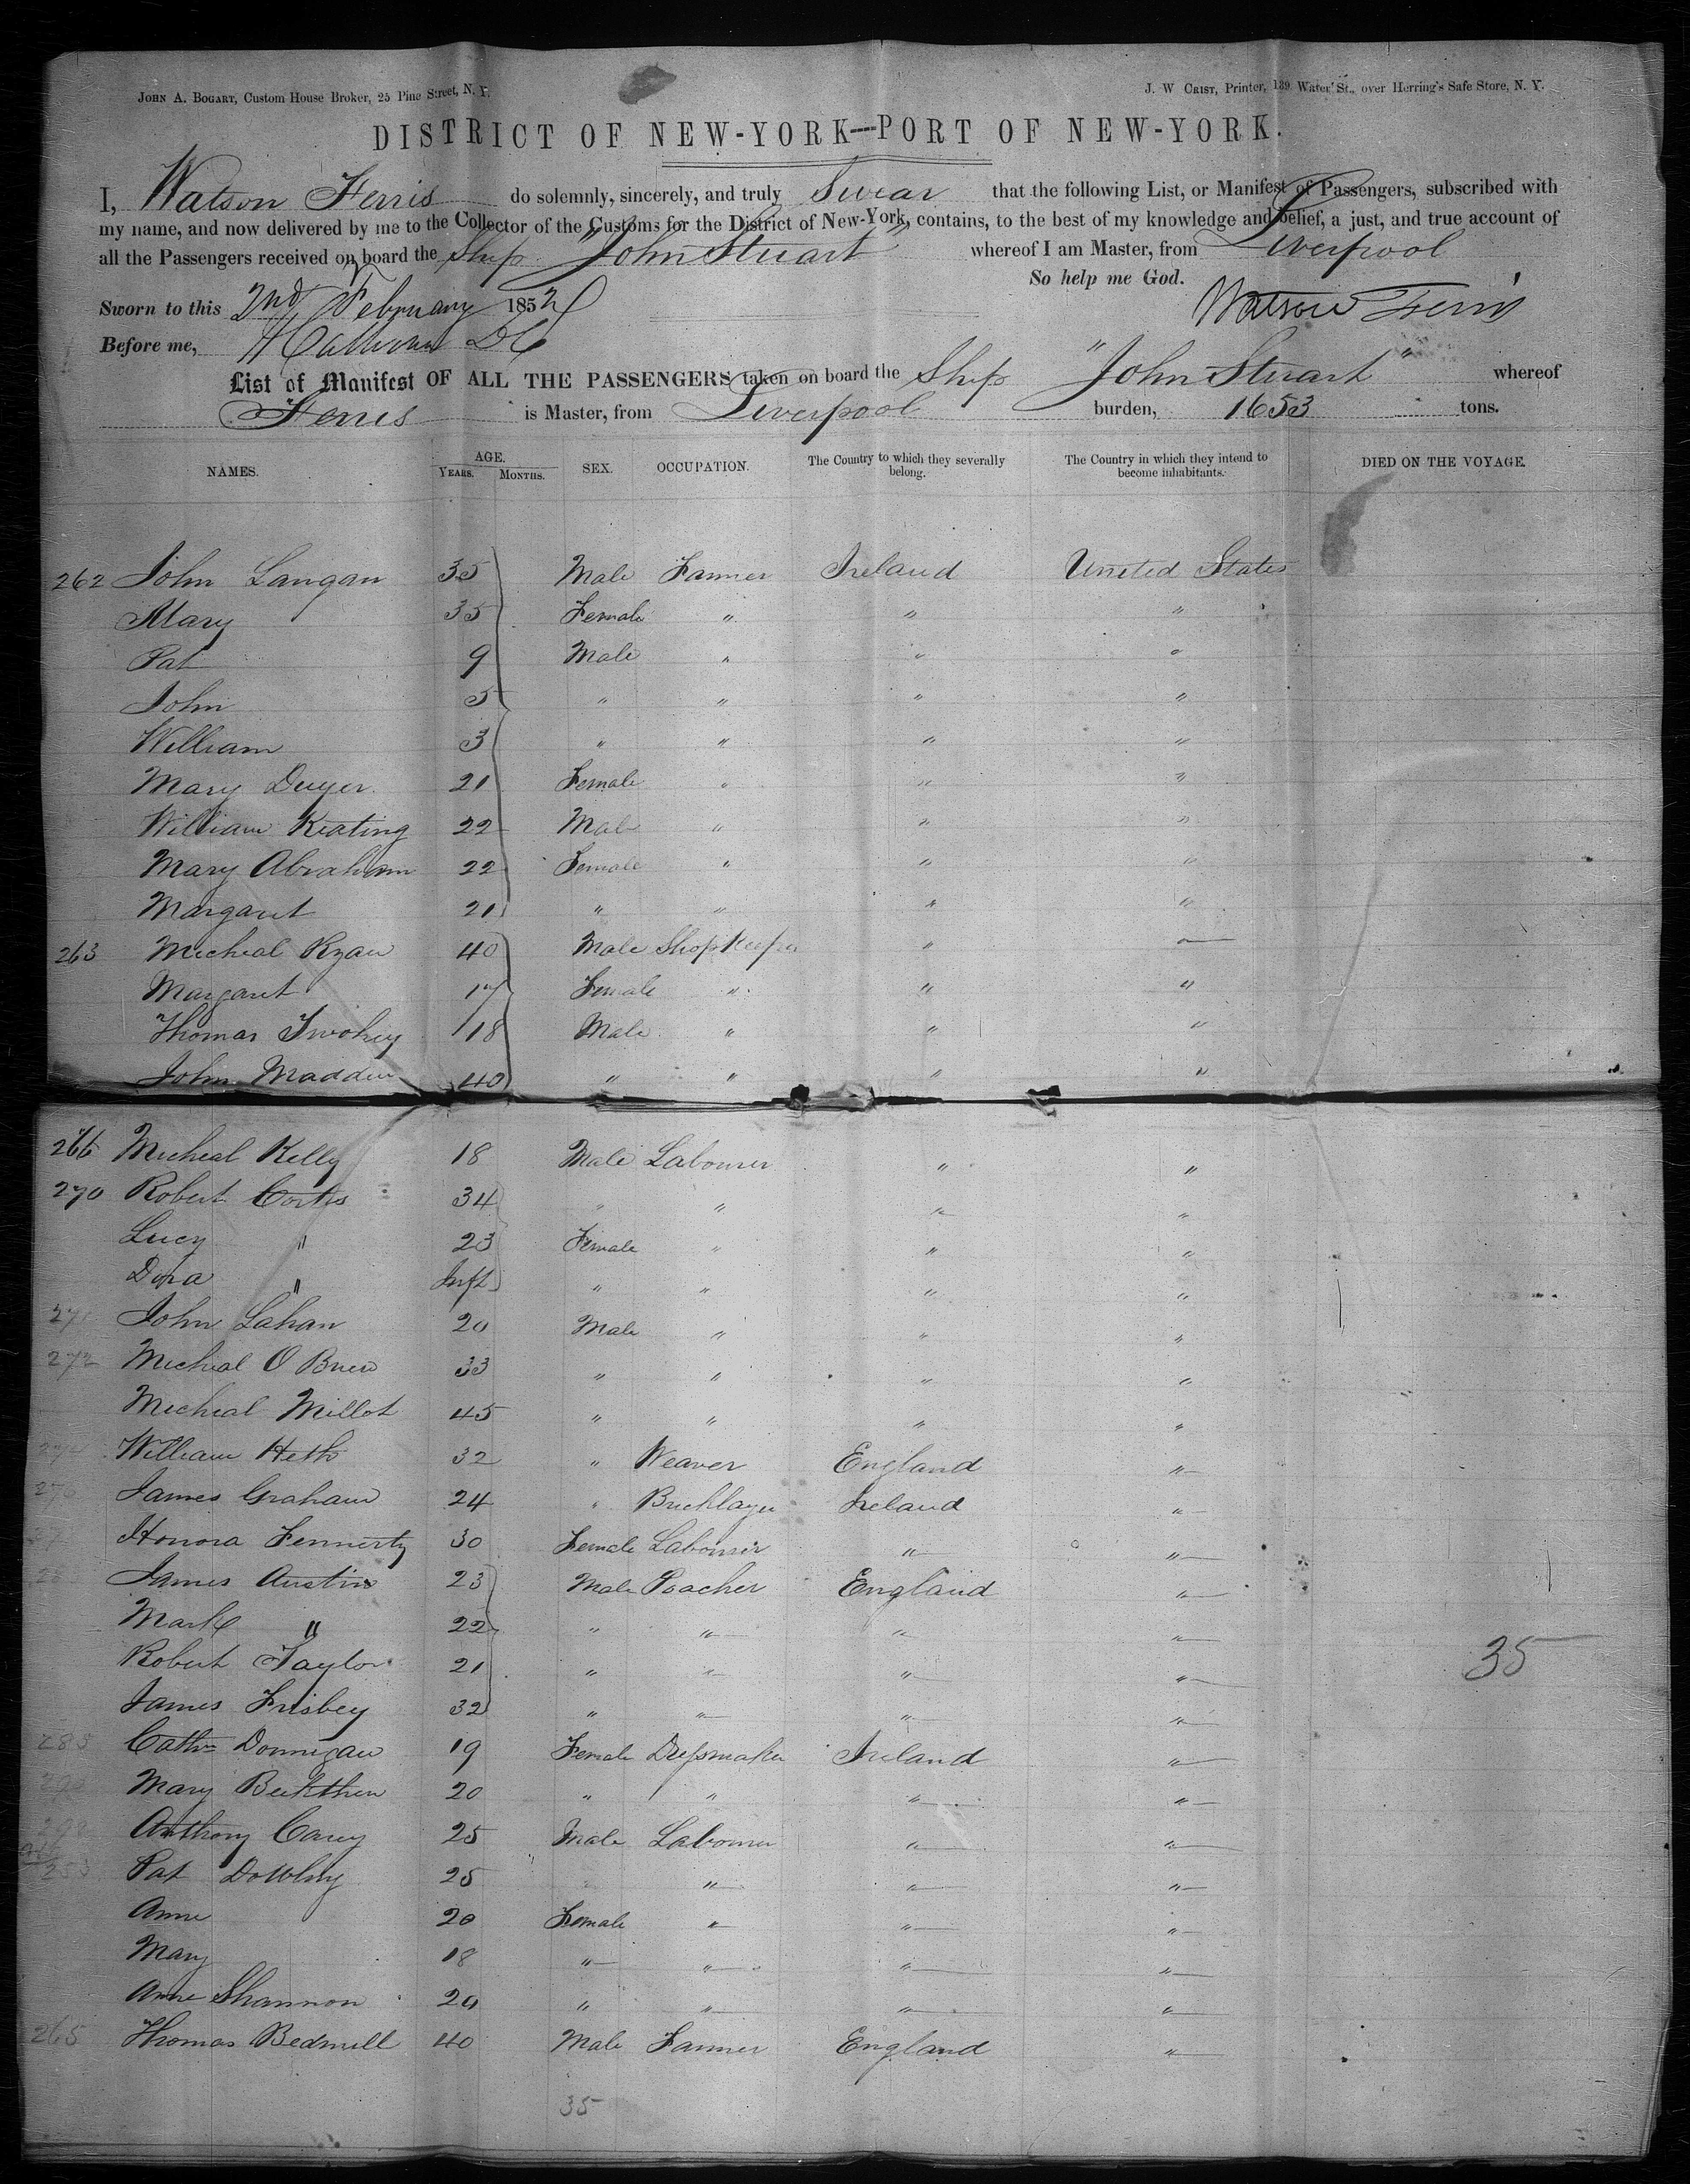 JOHN A. BOGART, Custom House Broker, 25 Pine Street, N. Y.
J. W CRIST, Printer, 139 Water St., over Herring's Safe Store, N. Y.
DISTRICT OF NEW-YORK---PORT OF NEW-YORK.
I, Watson Ferris do solemnly, sincerely, and truly Swear that the following List, or Manifest of Passengers, subscribed with
my name, and now delivered by me to the Collector of the Customs for the District of New-York, contains, to the best of my knowledge and belief, a just, and true account of
all the Passengers received on board the Ship "John Stuart" whereof I am Master, from Liverpool
So help me God.
Sworn to this 2nd February 1852
Watson Ferris
Before me,
List of Manifest OF ALL THE PASSENGERS taken on board the Ship "John Stuart" whereof
Ferris is Master, from Liverpool burden, 1653 tons.
NAMES. AGE. YEARS. MONTHS. SEX. OCCUPATION. The Country to which they severally belong. The Country in which they intend to become inhabitants. DIED ON THE VOYAGE.
262 John Langan 35 Male Farmer Ireland United States
Mary 35 Female " " "
Pat 9 Male " " "
John 5 " " " "
William 3 " " " "
Mary Dwyer 21 Female " " "
William Keating 22 Male " " "
Mary Abraham 22 Female " " "
Margaret 21 " " " "
263 Micheal Ryan 40 Male ShopKeeper " "
Margaret 17 Female " " "
Thomas Twohey 18 Male " " "
John Madden 40 " " " "
266 Micheal Kelly 18 Male Labourer " "
270 Robert Cortis 34 " " " "
Lucy " 23 Female " " "
Dora " Inft " " " "
271 John Lahan 20 Male " " "
272 Micheal O Brien 33 " " " "
Micheal Millot 45 " " " "
274 William Heth 32 " Weaver England "
276 James Graham 24 " Bricklayer Ireland "
Honora Fennerty 30 Female Labourer " "
James Austin 23 Male Poacher England "
Mark " 22 " " " "
Robert Taylor 21 " " " "
35
James Frisbey 32 " " " "
283 Cathn Donnigan 19 Female Dressmaker Ireland "
Mary 20 " " " "
Anthony Carey 25 Male Labourer " "
253 Pat Dowling 25 " " " "
Anne 20 Female " " "
Mary 18 " " " "
Anne Shannon 20 " " " "
265 Thomas Bedmill 40 Male Farmer England "
35